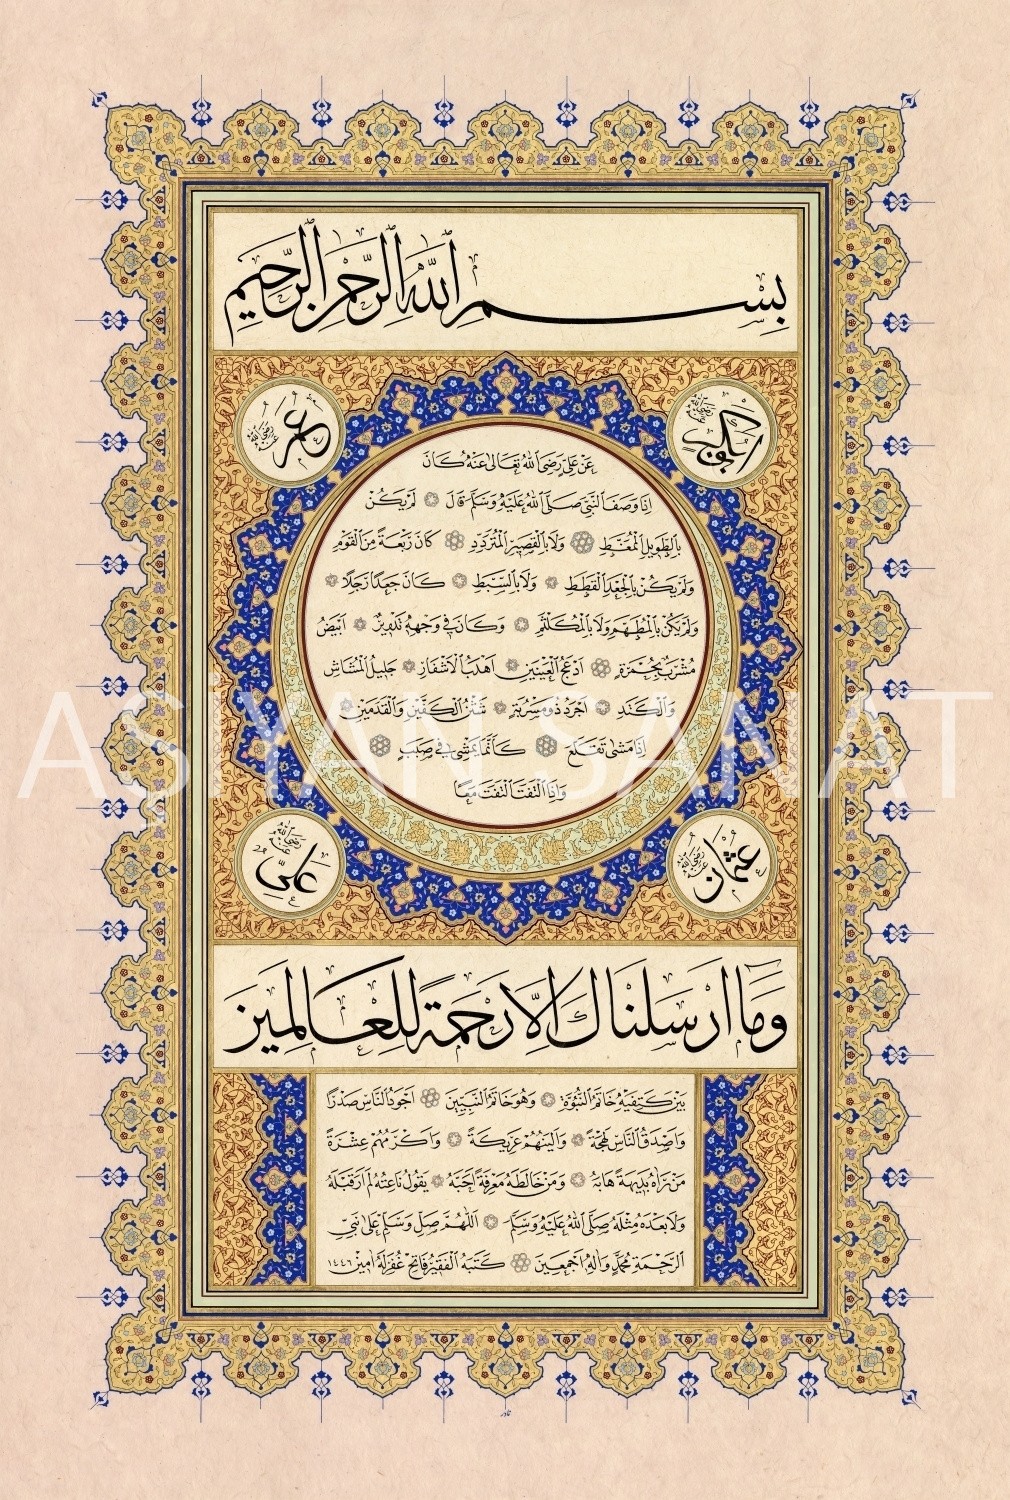 بِسْمِ اللّٰهِ الرَّحْمٰنِ الرَّحِيمِ
ابوبكر رضي الله عنه
عمر رضي الله عنه
عَنْ عَلِيٍّ رَضِيَ اللّٰهُ تَعَالٰى عَنْهُ كَانَ
اِذَا وَصَفَ النَّبِيَّ صَلَّى اللّٰهُ عَلَيْهِ وَسَلَّمَ قَالَ لَمْ يَكُنْ
بِالطَّوِيلِ الْمُمَّغِطِ وَلَا بِالْقَصِيرِ الْمُتَرَدِّدِ كَانَ رَبْعَةً مِنَ الْقَوْمِ
وَلَمْ يَكُنْ بِالْجَعْدِ الْقَطَطِ وَلَا بِالسَّبِطِ كَانَ جَعْدًا رَجِلًا
وَلَمْ يَكُنْ بِالْمُطَهَّمِ وَلَا بِالْمُكَلْثَمِ وَكَانَ فِي وَجْهِهِ تَدْوِيرٌ اَبْيَضُ
مُشْرَبٌ بِحُمْرَةٍ اَدْعَجُ الْعَيْنَيْنِ اَهْدَبُ الْاَشْفَارِ جَلِيلُ الْمُشَاشِ
وَالْكَتَدِ اَجْرَدُ ذُو مَسْرُبَةٍ شَثْنُ الْكَفَّيْنِ وَالْقَدَمَيْنِ
اِذَا مَشٰى تَقَلَّعَ كَاَنَّمَا يَمْشِي فِي صَبَبٍ
وَاِذَا الْتَفَتَ الْتَفَتَ مَعًا
عثمان رضي الله عنه
علي رضي الله عنه
وَمَا اَرْسَلْنَاكَ اِلَّا رَحْمَةً لِلْعَالَمِينَ
بَيْنَ كَتِفَيْهِ خَاتَمُ النُّبُوَّةِ وَهُوَ خَاتَمُ النَّبِيِّينَ اَجْوَدُ النَّاسِ صَدْرًا
وَاَصْدَقُ النَّاسِ لَهْجَةً وَاَلْيَنُهُمْ عَرِيكَةً وَاَكْرَمُهُمْ عِشْرَةً
مَنْ رَاٰهُ بَدِيهَةً هَابَهُ وَمَنْ خَالَطَهُ مَعْرِفَةً اَحَبَّهُ يَقُولُ نَاعِتُهُ لَمْ اَرَ قَبْلَهُ
وَلَا بَعْدَهُ مِثْلَهُ صَلَّى اللّٰهُ عَلَيْهِ وَسَلَّمَ اَللّٰهُمَّ صَلِّ وَسَلِّمْ عَلٰى نَبِيِّ
الرَّحْمَةِ مُحَمَّدٍ وَاٰلِهِ اَجْمَعِينَ كَتَبَهُ الْفَقِيرُ فَاتِحْ غُفِرَ لَهُ اٰمِينْ ١٤٤٦
ASİYAN SANAT